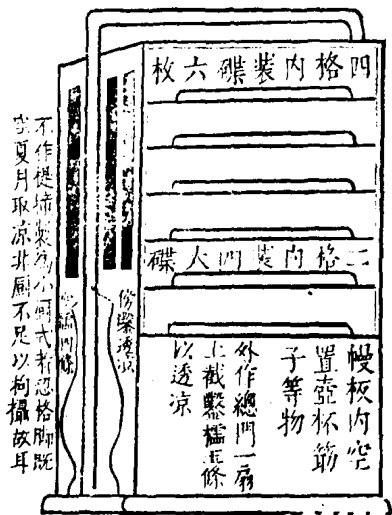 四格内裝碟六枚
二格内裝四大碟
幔板内空
置壺杯筯
子等物
外作總門一扇
上截鑿櫺五條
以透凉
傍鑿透凉
四條
不作提 製為小厨式者忍格脚既
空夏月取凉非厨不足以拘攝故耳